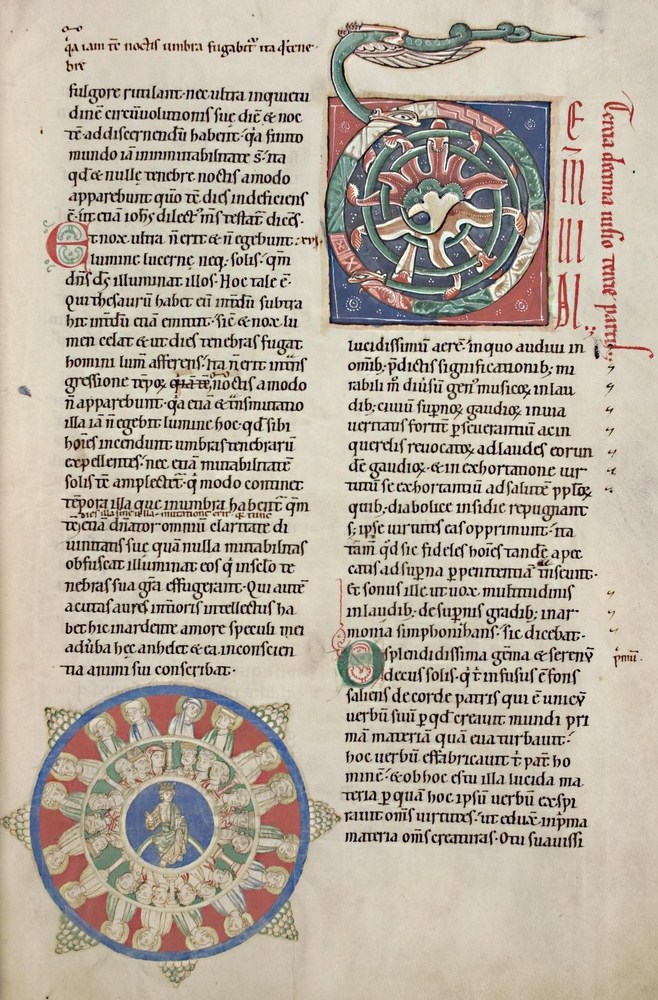 q̄a iam tē noctis umbra fugabit᷑ ita q̇ tene·
bre
fulgore rutilant· nec ultra inquietu
dinē circūuolutionis sue diē & noc
tē ad discernendū habent· q̄a finito
mundo iā inmutabilitate s̄· ita
qd & nullę tenebrę noctis amodo
apparebunt quo tē dies indeficiens
ē· ut etiā ioh̄s dilect᷑ m̄s testat᷑ dicēs·
Et nox ultra ñ erit & ñ egebunt·
lumine lucerne neq, solis· qm̄
dn̄s ds̄ illuminat illos· Hoc tale ē·
Qui thesaurū habet eū int̄dū subtra
hit int̄dū etiā emittit· sic̄ & nox lu
men celat & ut dies tenebras fugat
homini lum̄ afferens· ita ñ erit int̄ns
gressione tēpoꝝ noctis amodo
ñ apparebunt· q̄a etiā & t̄nsmutatio
illa iā ñ egebit lumine hoc· qd̄ sibi
hoīes incendunt umbras tenebrarū
expellentes· nec etiā mutabilitatē
solis tē amplectet᷑· q̇ modo continet
tēpora illa que in umbra habent᷑ qm̄
dies illa sine ulla mutatione erit q̄ tunc
etiā dn̄ator omniū claritate di
uinitatis suę quā nulla mutabilitas
obfuscat illuminat eos q̇ in sclo te
nebras sua gr̄a effugerant· Qui autē
acutas aures int̄ioris intellectus ha
bet hic in ardente amore speculi mei
ad ūba hęc anhelet & ea in conscien
tia animi sui conscribat·
Tercia decima uisio tercie partis·
E
IN
DE
UI
DI
lucidissimū aerē· in quo audiui in
om̄ib; p̄dictis significationib; mi
rabili m̄ diūsū gen᷑ musicoꝝ in lau
dib; ciuiū suꝑnoꝝ gaudioꝝ in uia
ueritatis fortit᷑ ꝑseuerantiū ac in
querelis reuocatoꝝ ad laudes eorun
dē gaudioꝝ· & in exhortatione uir
tutū se exhortantiū ad salutē pp̄loꝝ
quib; diabolice insidie repugnant
s; ipse uirtutes eas opprimunt· ita
tam̄ qd̄ sic fideles hoīes tandē a pec
catis ad suꝑna ꝑ penitentiā t̄nseunt·
Et sonus ille ut uox multitudinis
in laudib; de suꝑnis gradib; in ar
monia simphonizans· sic dicebat·
O splendidissima gēma & serenū
decus solis· q̇ t᷑ infusus ē fons
saliens de corde patris qui ē unicū
uerbū suū ꝑ qd̄ creauit mundi pri
mā materiā quā eua turbauit·
hoc uerbū effabricauit t᷑ pat᷑ ho
minē· & ob hoc es tu illa lucida ma
teria ꝑ quā hoc ipsū uerbū exspi
rauit om̄s uirtutes· ut eduxit in p̄ma
materia om̄s creaturas· O tu suauissi